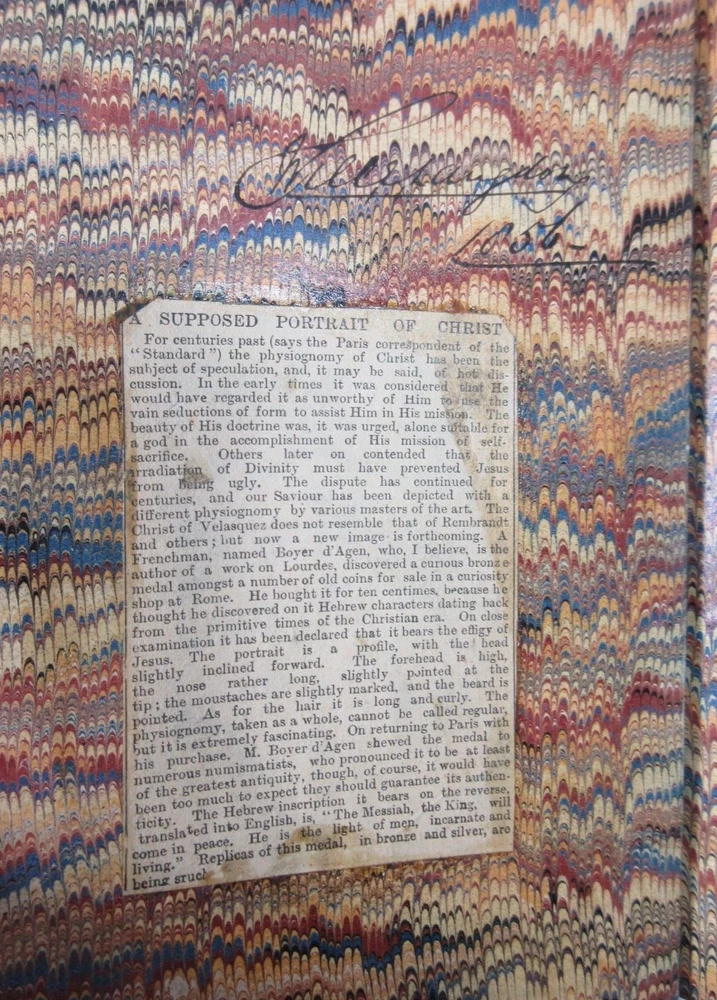 1856
A SUPPOSED PORTRAIT OF CHRIST
For centuries past (says the Paris correspondent of the
"Standard") the physiognomy of Christ has been the
subject of speculation, and, it may be said, of hot dis-
cussion. In the early times it was considered that He
would have regarded it as unworthy of Him to use the
vain seductions of form to assist Him in His mission. The
beauty of His doctrine was, it was urged, alone suitable for
a god in the accomplishment of His mission of self-
sacrifice. Others later on contended that the
irradiation of Divinity must have prevented Jesus
from being ugly. The dispute has continued for
centuries, and our Saviour has been depicted with a
different physiognomy by various masters of the art. The
Christ of Velasquez does not resemble that of Rembrandt
and others; but now a new image is forthcoming. A
Frenchman, named Boyer d'Agen, who, I believe, is the
author of a work on Lourdes, discovered a curious bronze
medal amongst a number of old coins for sale in a curiosity
shop at Rome. He bought it for ten centimes, because he
thought he discovered on it Hebrew characters dating back
from the primitive times of the Christian era. On close
examination it has been declared that it bears the effigy of
Jesus. The portrait is a profile, with the head
slightly inclined forward. The forehead is high,
the nose rather long, slightly pointed at the
tip; the moustaches are slightly marked, and the beard is
pointed. As for the hair it is long and curly. The
physiognomy, taken as a whole, cannot be called regular,
but it is extremely fascinating. On returning to Paris with
his purchase. M. Boyer d'Agen shewed the medal to
numerous numismatists, who pronounced it to be at least
of the greatest antiquity, though, of course, it would have
been too much to expect they should guarantee its authen-
ticity. The Hebrew inscription it bears on the reverse,
translated into English, is, "The Messiah, the King, will
come in peace. He is the light of men, incarnate and
living." Replicas of this medal, in bronze and silver, are
being struc